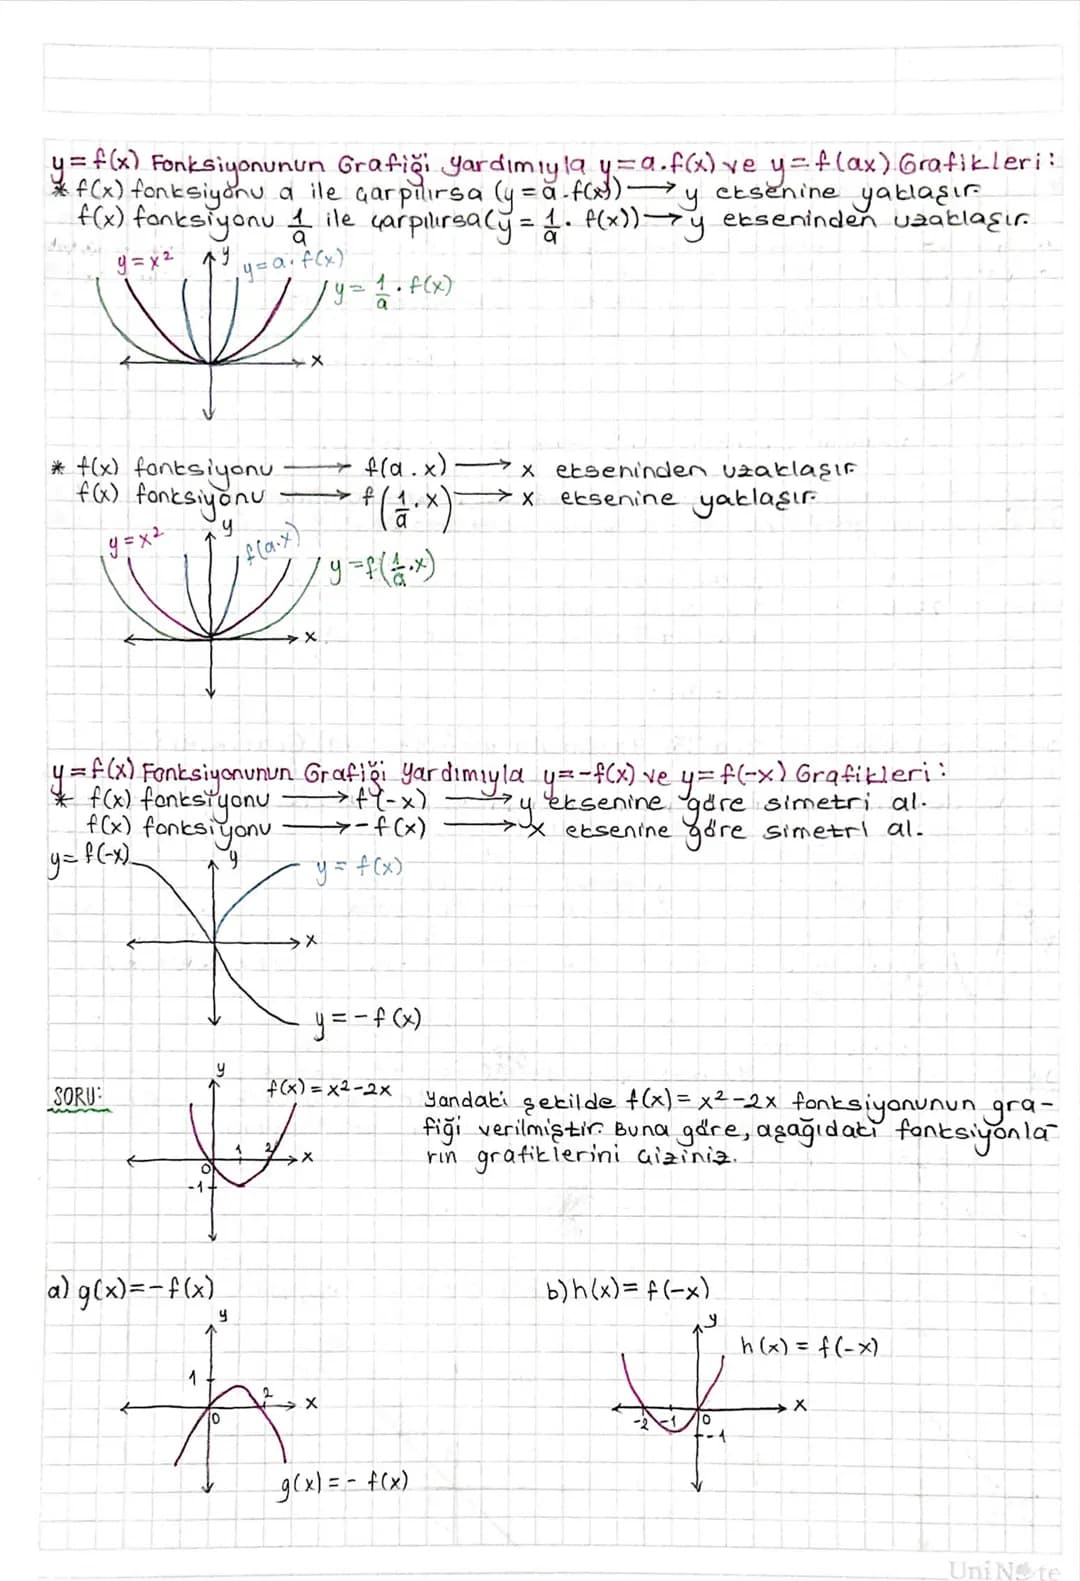 y=f(x) Fonksiyonunun Grafiği Yardımıyla y=a.f(x) ve y=f(ax) Grafikleri:
* f(x) fonksiyonu a ile çarpılırsa (y=a.f(x)) → y eksenine yaklaşır.
f(x) fonksiyonu 1/a ile çarpılırsa (y = 1/a . f(x)) → y ekseninden uzaklaşır.
y=x² y y=a.f(x)
y = 1/a . f(x)
x
* f(x) fonksiyonu → f(a.x) → x ekseninden uzaklaşır
f(x) fonksiyonu → f(1/a.x) → x eksenine yaklaşır.
y=x² y f(a.x)
y=f(1/a.x)
x
y=f(x) Fonksiyonunun Grafiği Yardımıyla y=-f(x) ve y=f(-x) Grafikleri:
* f(x) fonksiyonu → f(-x) → y eksenine göre simetri al.
f(x) fonksiyonu → -f(x) → x eksenine göre simetri al.
y=f(-x) y y = f(x)
x
y = -f(x)
SORU: y f(x) = x²-2x Yandaki şekilde f(x) = x²-2x fonksiyonunun gra-
fiği verilmiştir. Buna göre, aşağıdaki fonksiyonla-
rın grafiklerini çiziniz.
0 1 2 x
-1
a) g(x)=-f(x) b) h(x)= f(-x)
y y
h(x) = f(-x)
1 2 x
0
-2 -1 0 x
-1
g(x) = - f(x)
UniNote